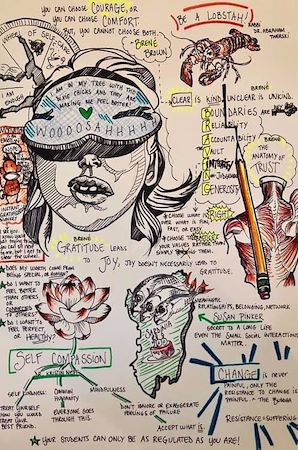 YOU CAN CHOOSE COURAGE, OR
YOU CAN CHOOSE COMFORT.
BUT, YOU CANNOT CHOOSE BOTH.
BRENÉ
BROWN
BE A LOBSTAH!
RABBI
DR. ABRAHAM
TWERSKI
OF SELF
I AM
ENOUGH
I AM IN MY TREE WITH THE
CHICKS AND THEY ARE
MAKING ME FEEL BETTER!
WOOOOSAHHHH
CLEAR IS KIND. UNCLEAR IS UNKIND.
BRENÉ
BOUNDARIES
RELIABILITY
ACCOUNTABILITY
VAULT
INTEGRITY
NON-JUDGEMENT
GENEROSITY
BRENÉ
THE
ANATOMY OF
TRUST
CHOOSE WHAT IS
RIGHT OVER
WHAT IS FUN,
FAST, OR EASY.
CHOOSE TO
PRACTICE
YOUR VALUES RATHER THAN
SIMPLY
THEM.
INSTANT
GRATIFICATION
BRENÉ
GRATITUDE LEADS
TO JOY, JOY DOESN'T NECESSARILY LEAD TO
GRATITUDE.
DOES MY WORTH COME FROM
BEING SPECIAL OR HUMAN?
DO I WANT TO
FEEL BETTER
THAN OTHERS
OR
CONNECTED
TO OTHERS?
DO I WANT TO
FEEL PERFECT,
OR
HEALTHY?
SARDINIA
RELATIONSHIPS, BELONGING, NETWORK
SUSAN PINKER
SECRET TO A LONG LIFE
EVEN THE SMALL SOCIAL INTERACTIONS
MATTER.
SELF COMPASSION
SELF KINDNESS
COMMON
HUMANITY
MINDFULNESS
TREAT YOURSELF
HOW YOU WOULD
TREAT YOUR
BEST FRIEND.
EVERYONE GOES
THROUGH THIS.
DON'T IGNORE OR EXAGGERATE
FEELINGS OF FAILURE
ACCEPT WHAT IS.
CHANGE is never
PAINFUL, ONLY THE
RESISTANCE TO CHANGE IS
PAINFUL. - THE BUDDHA
RESISTANCE = SUFFERING
YOUR STUDENTS CAN ONLY BE AS REGULATED AS YOU ARE!